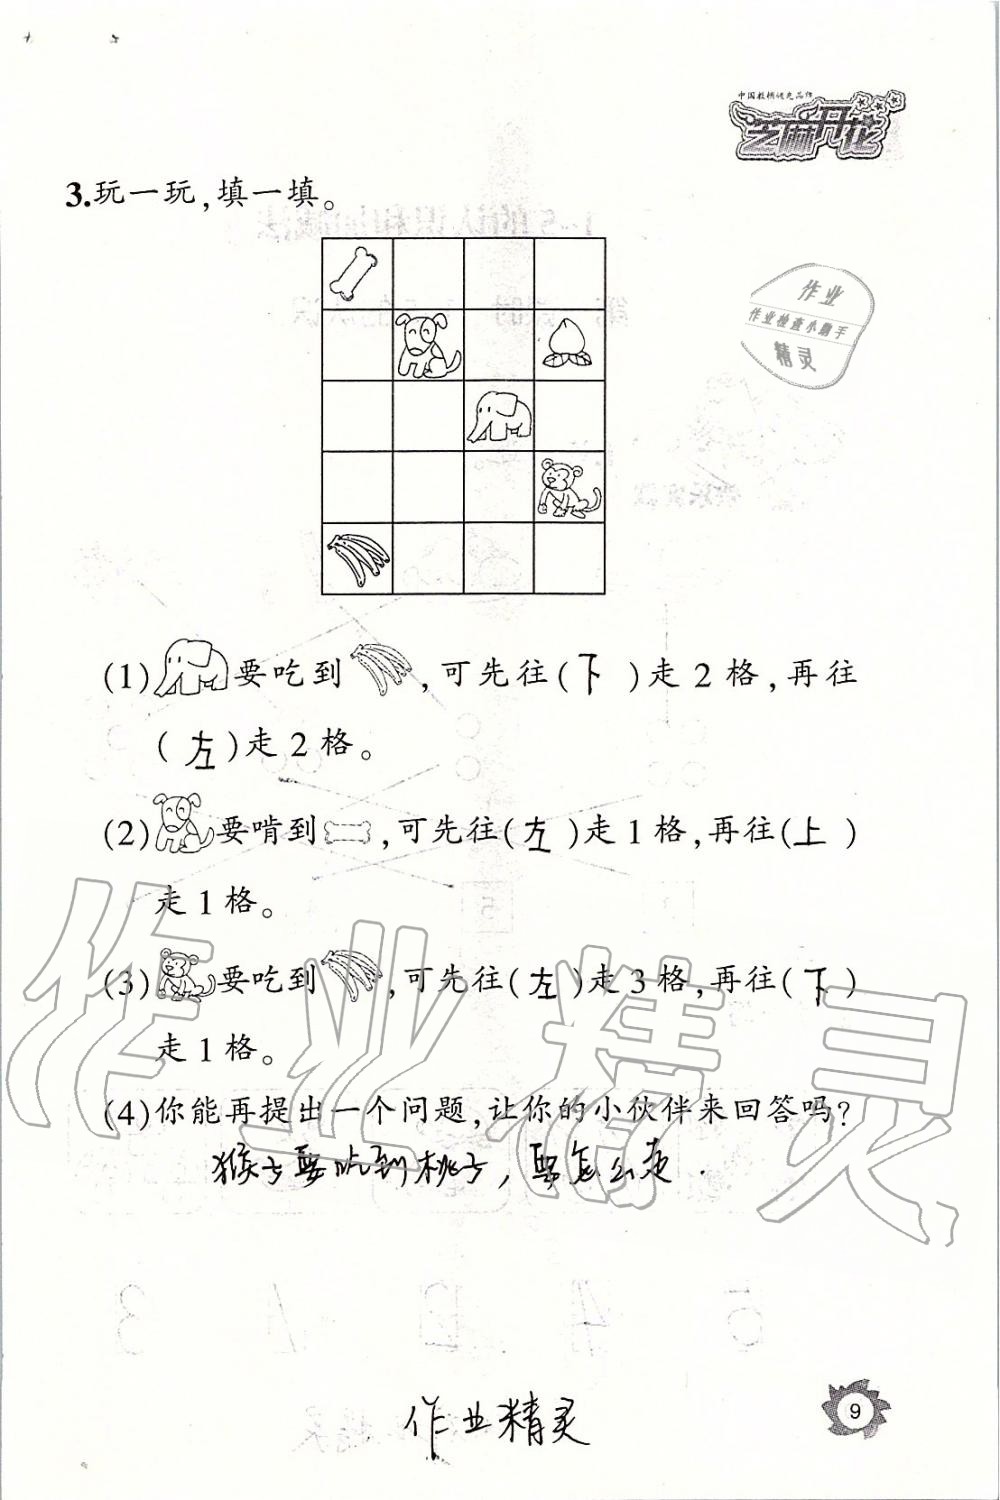 中国教辅优先品牌
芝麻开花
3.玩一玩,填一填。
作业
作业检查小助手
精灵
(1)要吃到,可先往(下)走2格,再往
(左)走2格。
(2)要啃到,可先往(左)走1格,再往(上)
走1格。
(3)要吃到,可先往(左)走3格,再往(下)
走1格。
(4)你能再提出一个问题,让你的小伙伴来回答吗?
猴子要吃到桃子,要怎么走.
作业精灵
作业精灵
9